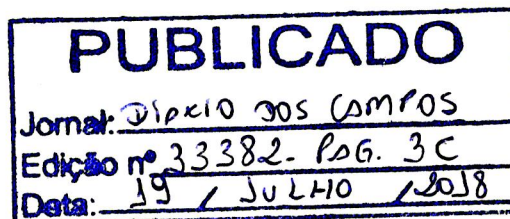 PUBLICADO
Jornal: DIÁRIO DOS CAMPOS
Edição nº 33382- PÁG. 3C
Data: 19 / JULHO / 2018